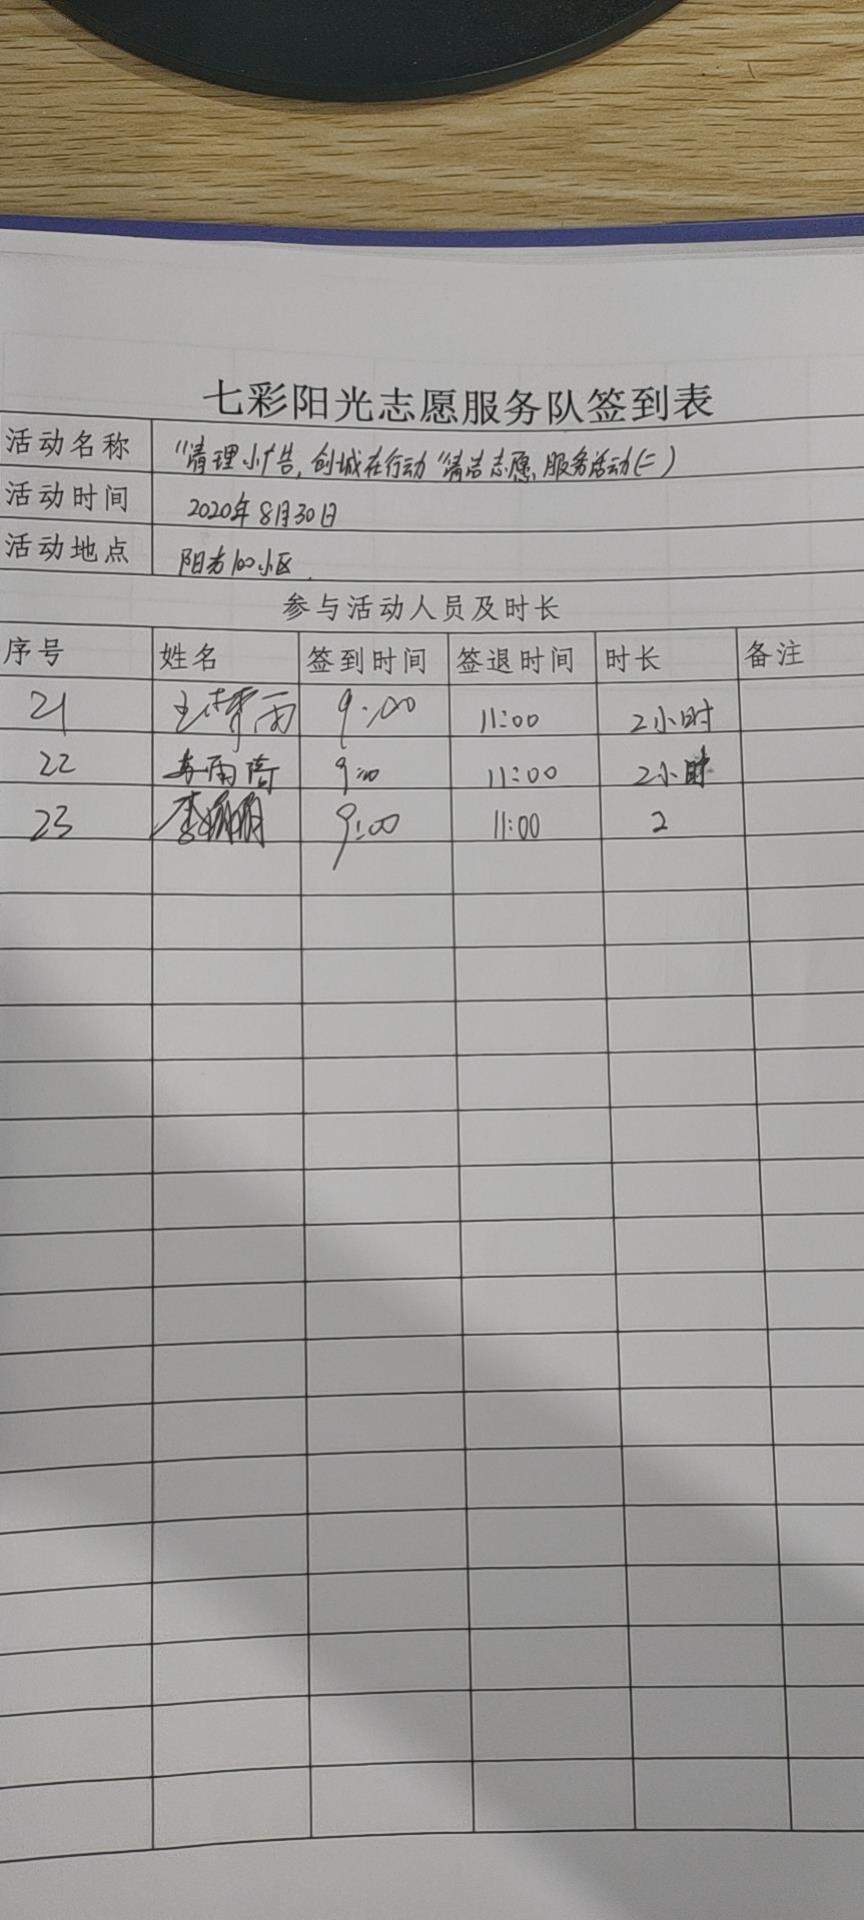 七彩阳光志愿服务队签到表
活动名称 "清理小广告,创城在行动"清洁志愿服务活动(二)
活动时间 2020年8月30日
活动地点 阳光100小区
参与活动人员及时长
序号 姓名 签到时间 签退时间 时长 备注
21 9:00 11:00 2小时
22 9:00 11:00 2小时
23 9:00 11:00 2